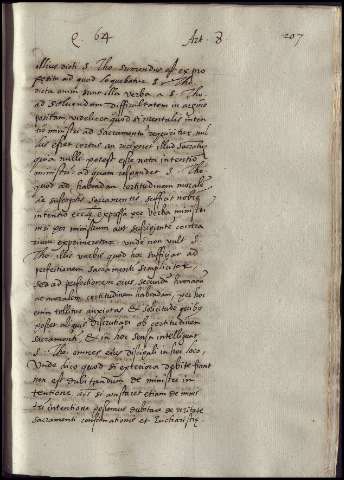 Q. 64 Art. 8 207
illius dicti S. Tho. sumendus est ex pro
ad quod loquebatur S. Tho.
dicta enim sunt illa verba a S. Tho.
ad soluendam difficultatem in argum
positam, videlicet quod si mentalis inten
tio ministri ad sacramenta requiritur nul
lus esset certus an reciperet illud sacram
quia nulli potest esse nota intentio
ministri ad quam respondet S. Tho.
quod ad habendam certitudinem morale
de susceptis sacramentis sufficit nobis
intentio expressa per verba ministri
nisi per ministrum aut suscipientem contra
rium exprimeretur. unde non vult S.
Tho. illis verbis quod hoc sufficiat ad
perfectionem sacramenti simpliciter
sed ad perfectionem eius secundum humanam
ac moralem certitudinem habendam, per hoc
enim tollitur anxietas et solicitudo quibus
posset aliquis discruciari ob certitudinem
sacramenti, et in hoc sensu intelligunt
S. Tho. omnes eius discipuli in hoc loco,
Unde dico quod si exteriora debite fiant
non est dubitandum de ministri in
tentione, nisi constaret etiam de
intentione possemus dubitare de veritate
sacramenti confirmationis et Eucharistiae.